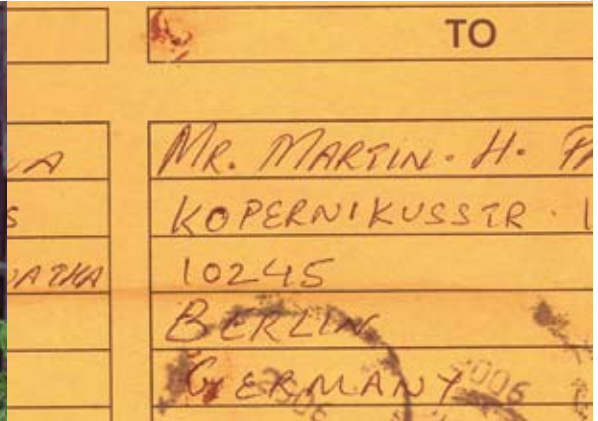 TO
MR. MARTIN. H.
KOPERNIKUSSTR. 1
10245
BERLIN
GERMANY
2006